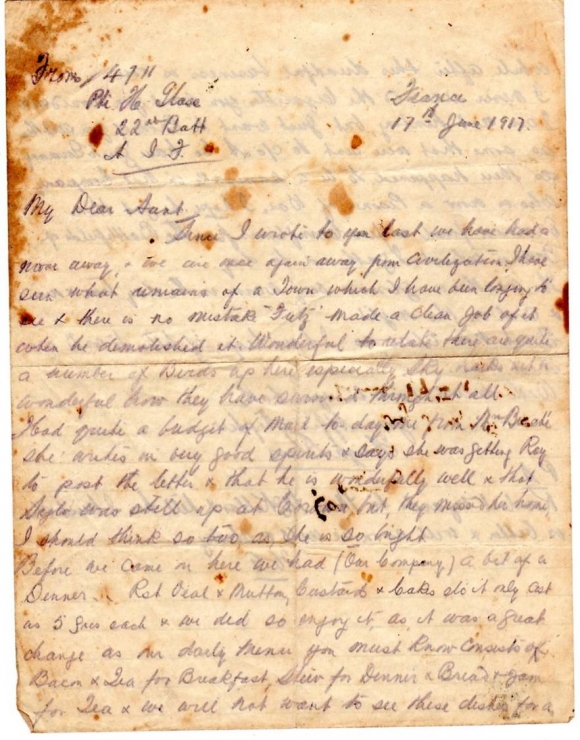 From / 4711
Pte H. Glase
22nd Batt
A I F
France
17th June 1917.
My Dear Aunt,
Since I wrote to you last we have had a
move away, & we are once again away from Civilization I have
seen what remains of a Town which I have been longing to
see & there is no mistake "Fritz" made a Clean Job of it
when he demolished it Wonderful to relate there are quite
a number of Birds up here especially Sky Larks & it is
wonderful how they have through it all.
Had quite a budget of Mail to day one from Mrs
she writes in very good spirits & says she was getting Ray
to post the letter & that he is wonderfully well & that
was still up at but, they missed her home
I should think so too as she is so bright
Before we came on here we had (Our Company) a bit of a
Dinner. Rst Veal & Mutton, Custard & Cakes etc it only cost
us 5 frcs each & we did so enjoy it as it was a great
change as our daily Menu you must know Consists of
Bacon & Tea for Breakfast, Stew for Dinner & Bread & Jam
for Tea & we will not want to see these dishes for a